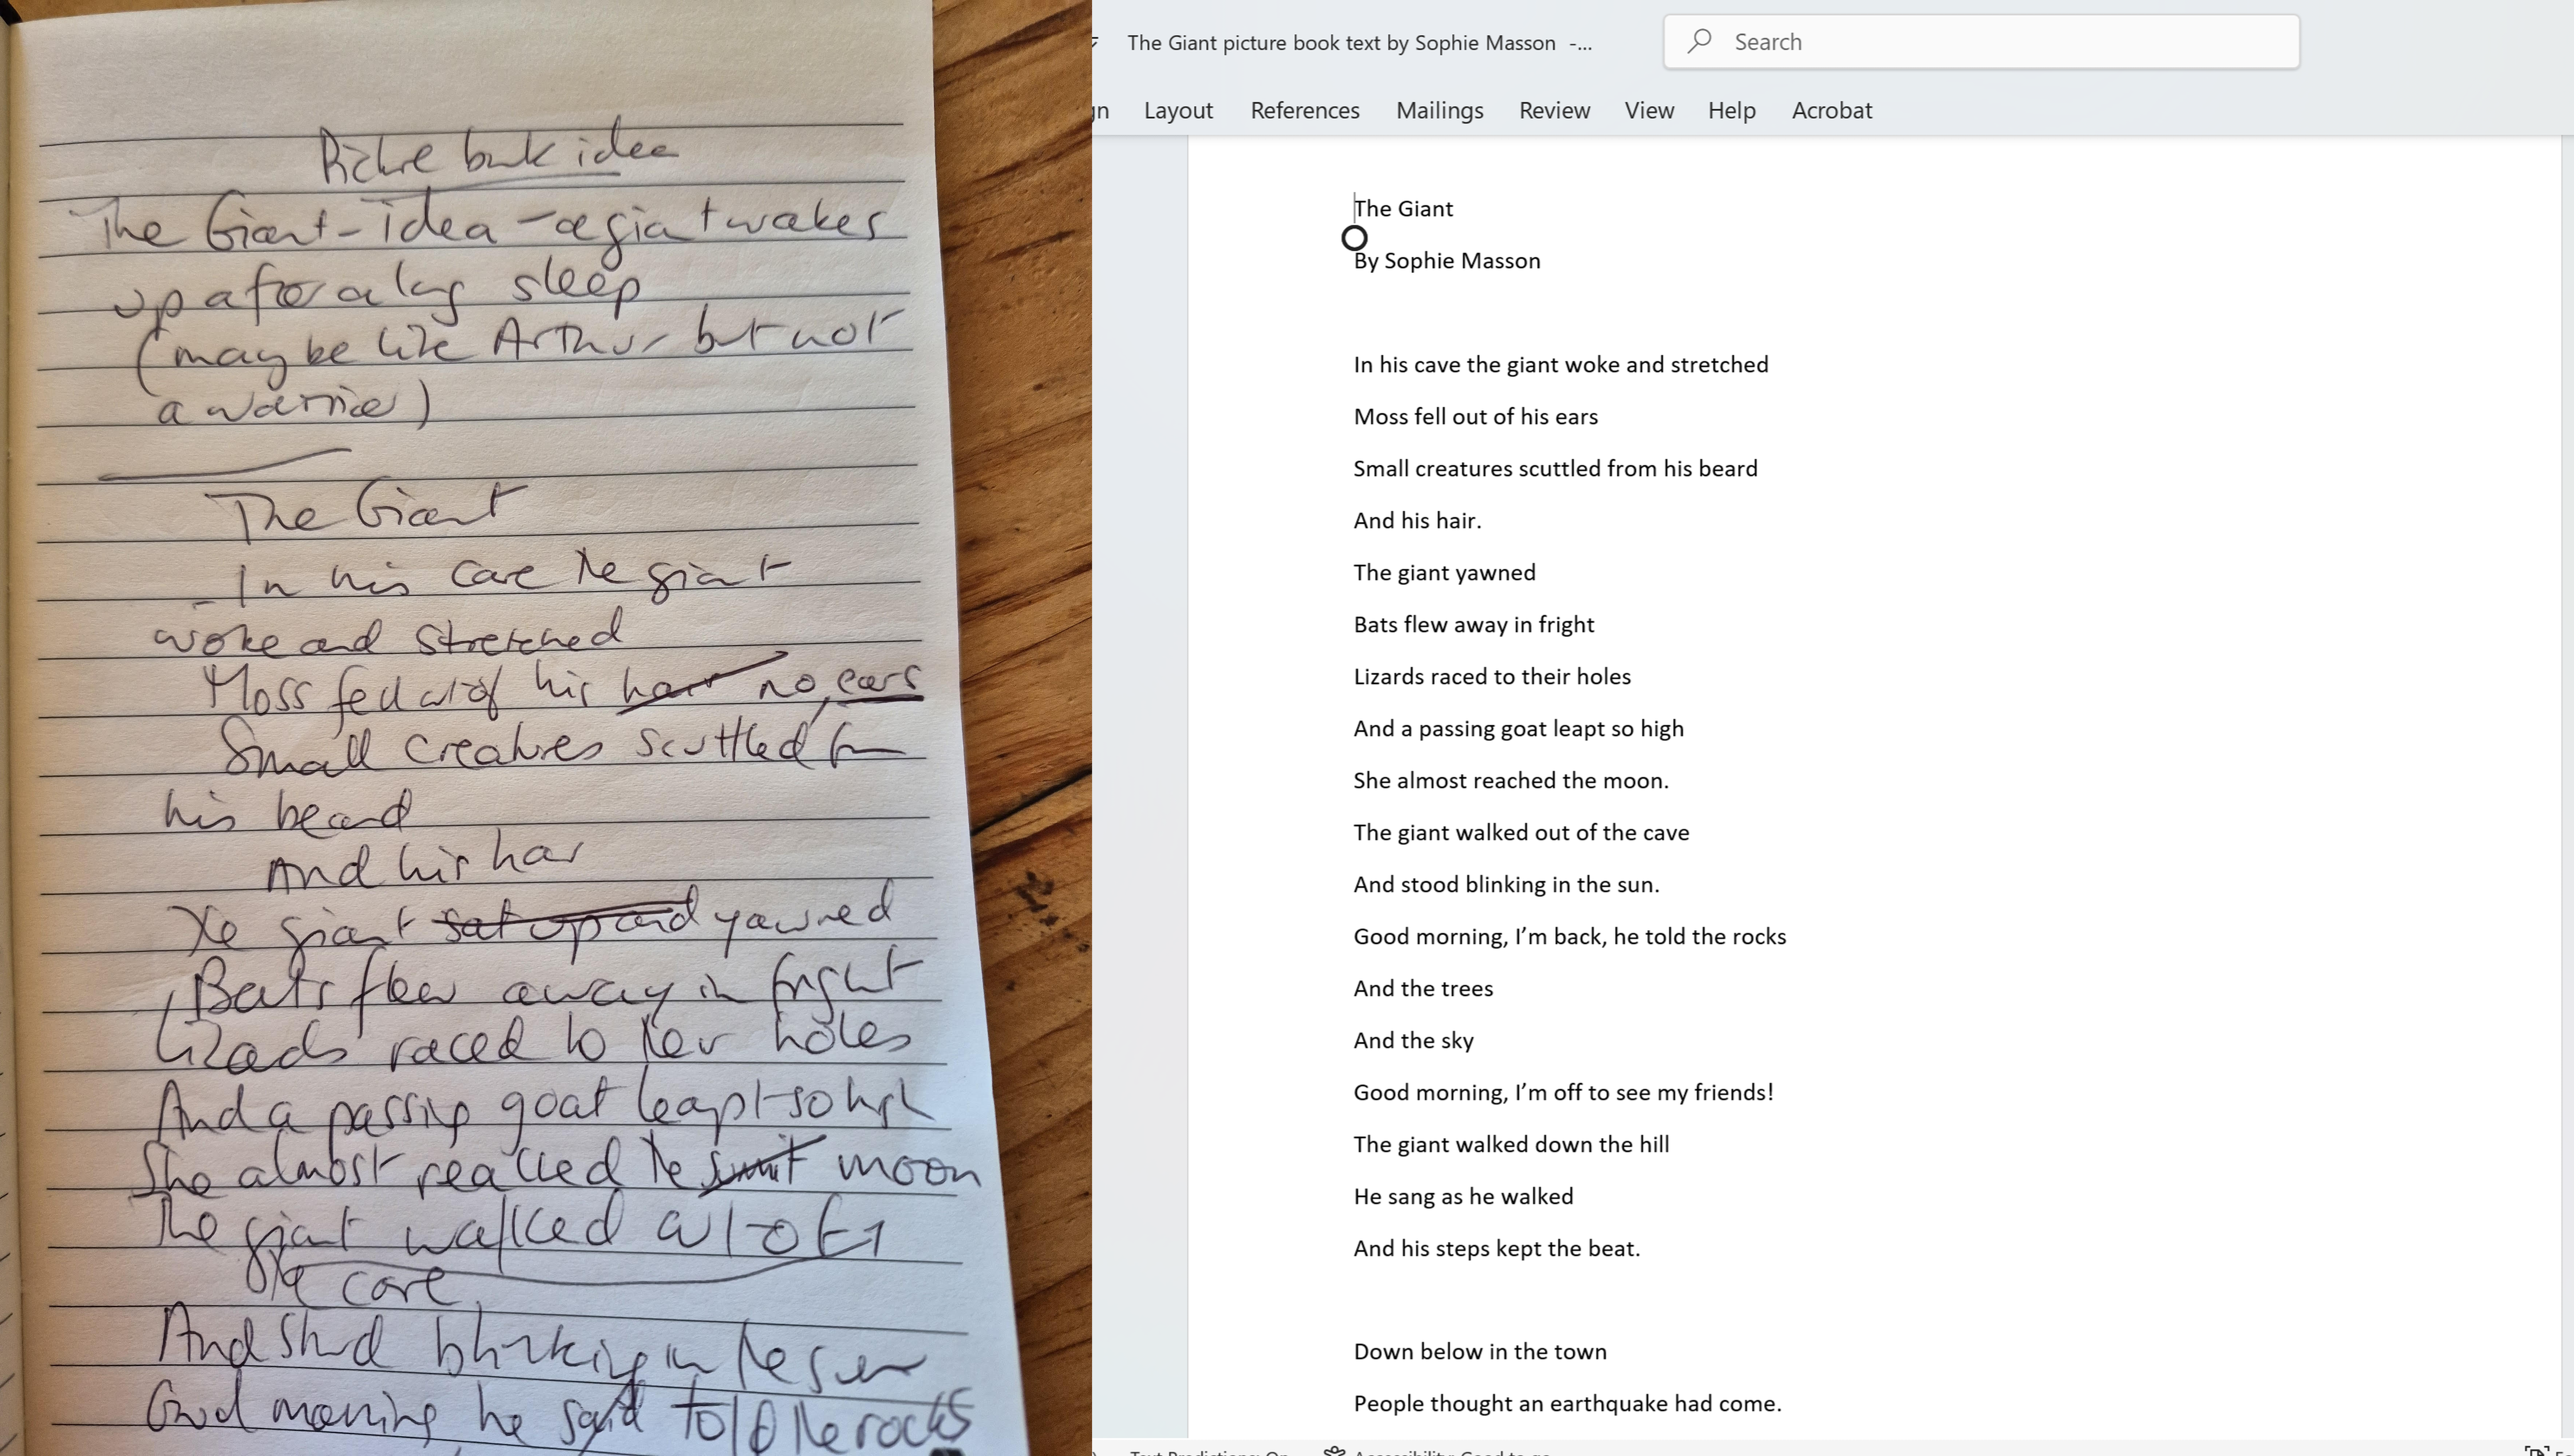 Picture book idea
The Giant - idea - a giant wakes
up after a long sleep
(maybe like Arthur but not
a warrior)
The Giant
In his cave the giant
woke and stretched
Moss fell out of his hair no, ears
Small creatures scuttled from
his beard
And his hair
The giant sat up and yawned
Bats flew away in fright
Lizards raced to their holes
And a passing goat leapt so high
She almost reached the moon
The giant walked out of
the cave
And stood blinking in the sun
Good morning he said told the rocks
The Giant picture book text by Sophie Masson -...
Search
gn Layout References Mailings Review View Help Acrobat
The Giant
By Sophie Masson
In his cave the giant woke and stretched
Moss fell out of his ears
Small creatures scuttled from his beard
And his hair.
The giant yawned
Bats flew away in fright
Lizards raced to their holes
And a passing goat leapt so high
She almost reached the moon.
The giant walked out of the cave
And stood blinking in the sun.
Good morning, I'm back, he told the rocks
And the trees
And the sky
Good morning, I'm off to see my friends!
The giant walked down the hill
He sang as he walked
And his steps kept the beat.
Down below in the town
People thought an earthquake had come.
Text Predictions: On Accessibility: Good to go